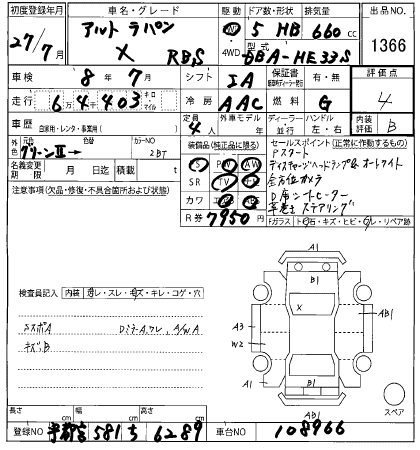 初度登録年月 車名・グレード 駆動 ドア数・形状 排気量 出品NO
27/7月 アルト ラパン X RBS 4WD 5 HB 660 cc 1366
型式 DBA-HE33S
車検 8年7月 シフト IA 保証書 有・無 評価点
走行 6万4千403 キロ マイル 冷房 AAC 燃料 G 4
車歴 自家用・レンタ・事業用( ) 定員 4人 外車モデル年 ディーラー 並行 ハンドル 左・右 内装 B
外色 元色 グリーンⅡ→ 色替 カラーNO 2BT
装備品(純正品に限る) セールスポイント(正常に作動するもの)
名義変更期限 月 日迄 積載 t
S PW AW
SR TV ナビ
カワ エアB ABS
R券 7950円
Pスタート
ディスチャージヘッドランプ&オートライト
全方位カメラ
D席シートヒーター
革巻きステアリング
注意事項(欠品・修復・不具合箇所および状態)
Fガラス トビ石・キズ・ヒビ・ワレ・リペア跡
検査員記入 内装 ヨゴレ・スレ・キズ・キレ・コゲ・穴
エスボA DミラーA,ワレ、A/WA
キズB
A1
B1
X
A3
W2
AB1
A1
A1
B1
AB1
スペア
長さ cm 幅 cm 高さ cm
登録NO 宇都宮 581 ち 6289 車台NO 108966